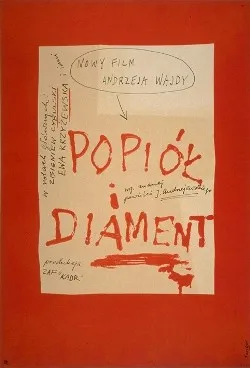 NOWY FILM
ANDRZEJA WAJDY
w rolach głównych:
ZBIGNIEW CYBULSKI
EWA KRZYŻEWSKA i inni
POPIÓŁ
i
wg znanej
powieści J. Andrzejewskiego
DIAMENT
produkcja
ZAF "KADR"